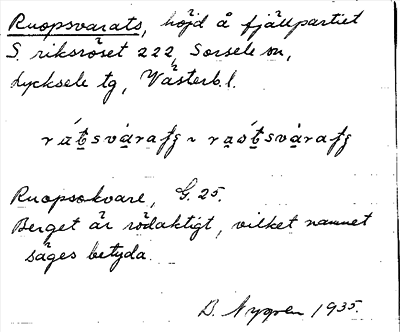 Ruopsvarats, höjd å fjällpartiet
S. riksröset 222, Sorsele sn,
Lycksele tg, Västerb. l.
Ruopsokvare, G. 25.
Berget är rödaktigt, vilket namnet
säges betyda.
B. Nygren 1935.